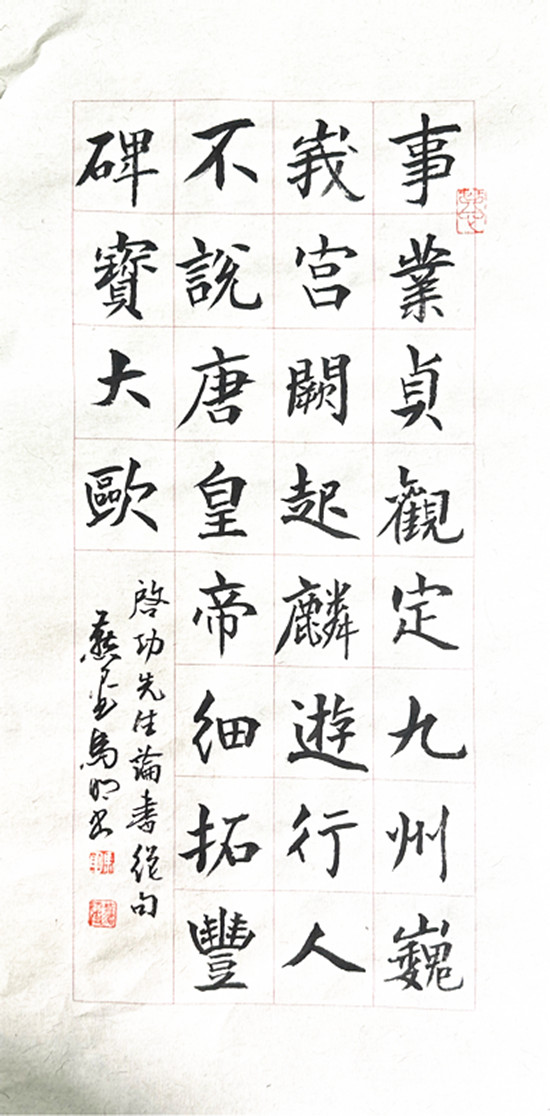 事業貞觀定九州巍
峩宮闕起麟遊行人
不說唐皇帝細拓豐
碑寶大歐
啓功先生論書絕句
燕馬明書